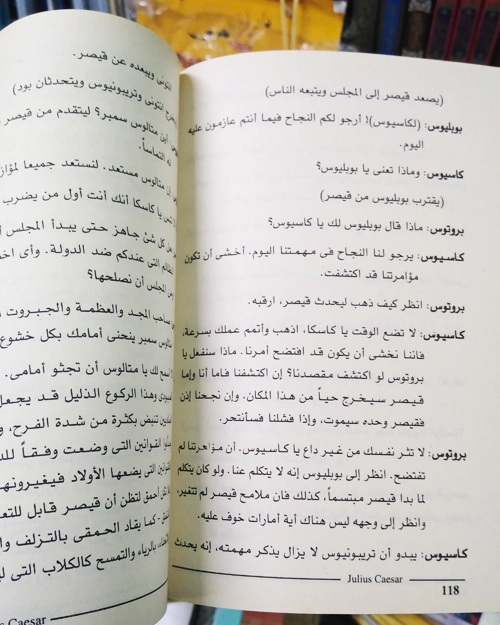 (يصعد قيصر إلى المجلس ويتبعه الناس)
بوبليوس: (لكاسيوس)؛ أرجو لكم النجاح فيما أنتم عازمون عليه
اليوم.
كاسيوس: وماذا تعنى يا بوبليوس؟
(يقترب بوبليوس من قيصر)
بروتوس: ماذا قال بوبليوس لك يا كاسيوس؟
كاسيوس: يرجو لنا النجاح فى مهمتنا اليوم. أخشى أن تكون
مؤامرتنا قد اكتشفت.
بروتوس: انظر كيف ذهب ليحدث قيصر، ارقبه.
كاسيوس: لا تضع الوقت يا كاسكا، اذهب وأتمم عملك بسرعة،
فاننا نخشى أن يكون قد افتضح أمرنا. ماذا سنفعل يا
بروتوس لو اكتشف مقصدنا؟ إن اكتشفنا فاما أنا وإما
قيصر سيخرج حياً من هذا المكان. وإن نجحنا إذن
فقيصر وحده سيموت، وإذا فشلنا فسأنتحر.
بروتوس: لا تثر نفسك من غير داع يا كاسيوس. أن مؤامرتنا لم
تفتضح. انظر إلى بوبليوس إنه لا يتكلم عنا. ولو كان يتكلم
لما بدا قيصر مبتسماً، كذلك فان ملامح قيصر لم تتغير،
وانظر إلى وجهه ليس هناك أية أمارات خوف عليه.
كاسيوس: يبدو أن تريبونيوس لا يزال يذكر مهمته، إنه يحدث
Julius Caesar
118
انتونى ويبعده عن قيصر.
انتونى وتريبونيوس ويتحدثان بود)
أين متالوس سمبر؟ ليتقدم من قيصر
له التماساً.
متالوس مستعد. لنستعد جميعا لمؤاز
يا كاسكا أنك أنت أول من يضرب
كل شئ جاهز حتى يبدأ المجلس
التى عندكم ضد الدولة. وأى
المجلس أن نصلحها؟
صاحب المجد والعظمة والجبروت
سمبر ينحنى أمامك بكل خشوع
لك يا متالوس أن تجثو أمامى.
وهذا الركوع الذليل قد يجعل
تنبض بكثرة من شدة الفرح،
القوانين التى وضعت وفقاً
التى يضعها الأولاد فيغيرونها
أحمق لتظن أن قيصر قابل
كما يقاد الحمقى بالتزلف
بالرياء والتمسح كالكلاب التى
Caesar